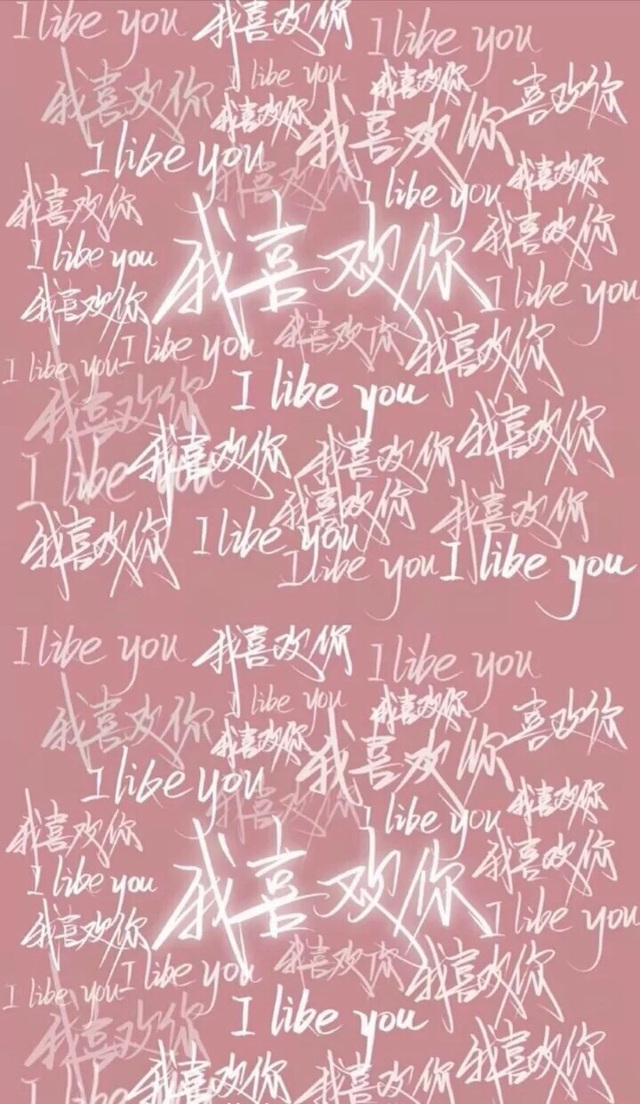 I libe you 我喜欢你 I libe you
我喜欢你 I libe you 我喜欢你 喜欢你
我喜欢你 我喜欢你
I libe you 我喜欢你 I libe you 我喜欢你
我喜欢你 我喜欢你
I libe you 我喜欢你
我喜欢你 I libe you
I libe you I libe you 我喜欢你 我喜欢你
我喜欢你 I libe you
我喜欢你 我喜欢你 我喜欢你
I libe you 我喜欢你 我喜欢你
我喜欢你 I libe you
I libe you I libe you
I libe you 我喜欢你 I libe you
我喜欢你 I libe you 我喜欢你 喜欢你
我喜欢你 我喜欢你
I libe you 我喜欢你 I libe you 我喜欢你
我喜欢你 我喜欢你
I libe you 我喜欢你
我喜欢你 I libe you
I libe you I libe you 我喜欢你 我喜欢你
我喜欢你 I libe you
我喜欢你 我喜欢你 我喜欢你